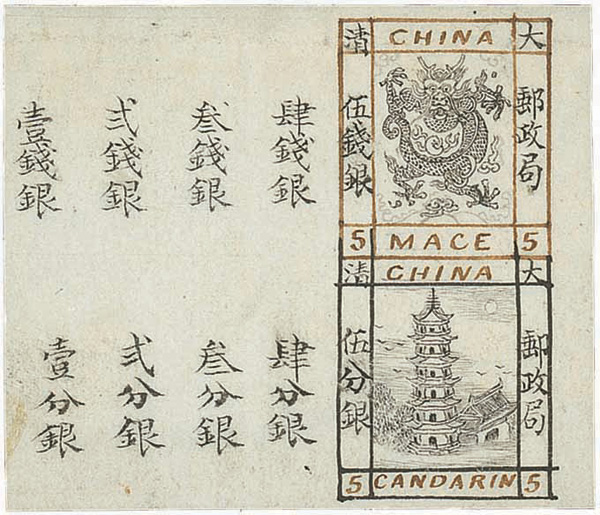 大
郵政局
CHINA
清
伍錢銀
5 MACE 5
大
郵政局
CHINA
清
伍分銀
5 CANDARIN 5
肆錢銀
叁錢銀
弍錢銀
壹錢銀
肆分銀
叁分銀
弍分銀
壹分銀